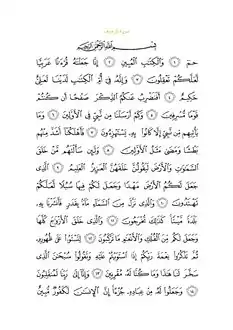 سورة الزخرف
بِسْمِ ٱللَّهِ ٱلرَّحْمَٰنِ ٱلرَّحِيمِ
حمٓ ١ وَٱلْكِتَٰبِ ٱلْمُبِينِ ٢ إِنَّا جَعَلْنَٰهُ قُرْءَٰنًا عَرَبِيًّا
لَّعَلَّكُمْ تَعْقِلُونَ ٣ وَإِنَّهُۥ فِىٓ أُمِّ ٱلْكِتَٰبِ لَدَيْنَا لَعَلِىٌّ
حَكِيمٌ ٤ أَفَنَضْرِبُ عَنكُمُ ٱلذِّكْرَ صَفْحًا أَن كُنتُمْ
قَوْمًا مُّسْرِفِينَ ٥ وَكَمْ أَرْسَلْنَا مِن نَّبِىٍّ فِى ٱلْأَوَّلِينَ ٦ وَمَا
يَأْتِيهِم مِّن نَّبِىٍّ إِلَّا كَانُوا۟ بِهِۦ يَسْتَهْزِءُونَ ٧ فَأَهْلَكْنَآ أَشَدَّ مِنْهُم
بَطْشًا وَمَضَىٰ مَثَلُ ٱلْأَوَّلِينَ ٨ وَلَئِن سَأَلْتَهُم مَّنْ خَلَقَ
ٱلسَّمَٰوَٰتِ وَٱلْأَرْضَ لَيَقُولُنَّ خَلَقَهُنَّ ٱلْعَزِيزُ ٱلْعَلِيمُ ٩ ٱلَّذِى
جَعَلَ لَكُمُ ٱلْأَرْضَ مَهْدًا وَجَعَلَ لَكُمْ فِيهَا سُبُلًا لَّعَلَّكُمْ
تَهْتَدُونَ ١٠ وَٱلَّذِى نَزَّلَ مِنَ ٱلسَّمَآءِ مَآءًۢ بِقَدَرٍ فَأَنشَرْنَا بِهِۦ
بَلْدَةً مَّيْتًا كَذَٰلِكَ تُخْرَجُونَ ١١ وَٱلَّذِى خَلَقَ ٱلْأَزْوَٰجَ كُلَّهَا
وَجَعَلَ لَكُم مِّنَ ٱلْفُلْكِ وَٱلْأَنْعَٰمِ مَا تَرْكَبُونَ ١٢ لِتَسْتَوُۥا۟ عَلَىٰ ظُهُورِهِۦ
ثُمَّ تَذْكُرُوا۟ نِعْمَةَ رَبِّكُمْ إِذَا ٱسْتَوَيْتُمْ عَلَيْهِ وَتَقُولُوا۟ سُبْحَٰنَ ٱلَّذِى
سَخَّرَ لَنَا هَٰذَا وَمَا كُنَّا لَهُۥ مُقْرِنِينَ ١٣ وَإِنَّآ إِلَىٰ رَبِّنَا لَمُنقَلِبُونَ
١٤ وَجَعَلُوا۟ لَهُۥ مِنْ عِبَادِهِۦ جُزْءًا إِنَّ ٱلْإِنسَٰنَ لَكَفُورٌ مُّبِينٌ